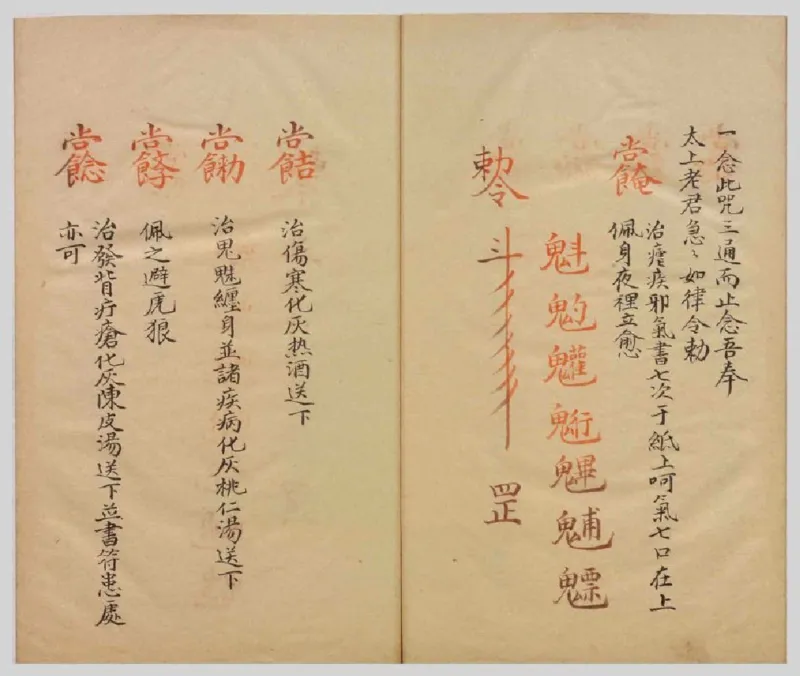 一念此咒三通而止念吾奉
太上老君急〻如律令勅
治瘧疾邪氣書七次于紙上呵氣七口在上
佩身夜裡立愈
魁䰢魓魒
勅令 斗 罡
治傷寒化灰热酒送下
治鬼魅纏身並諸疾病化灰桃仁湯送下
佩之避虎狼
治發背疔瘡化灰陳皮湯送下並書符患處
亦可